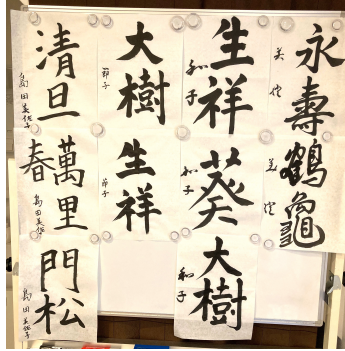 永壽
鶴龜
生祥
和子
葵
和子
大樹
和子
大樹
節子
生祥
節子
清旦
島田美佐子
萬里
春
島田美佐子
門松
島田美佐子